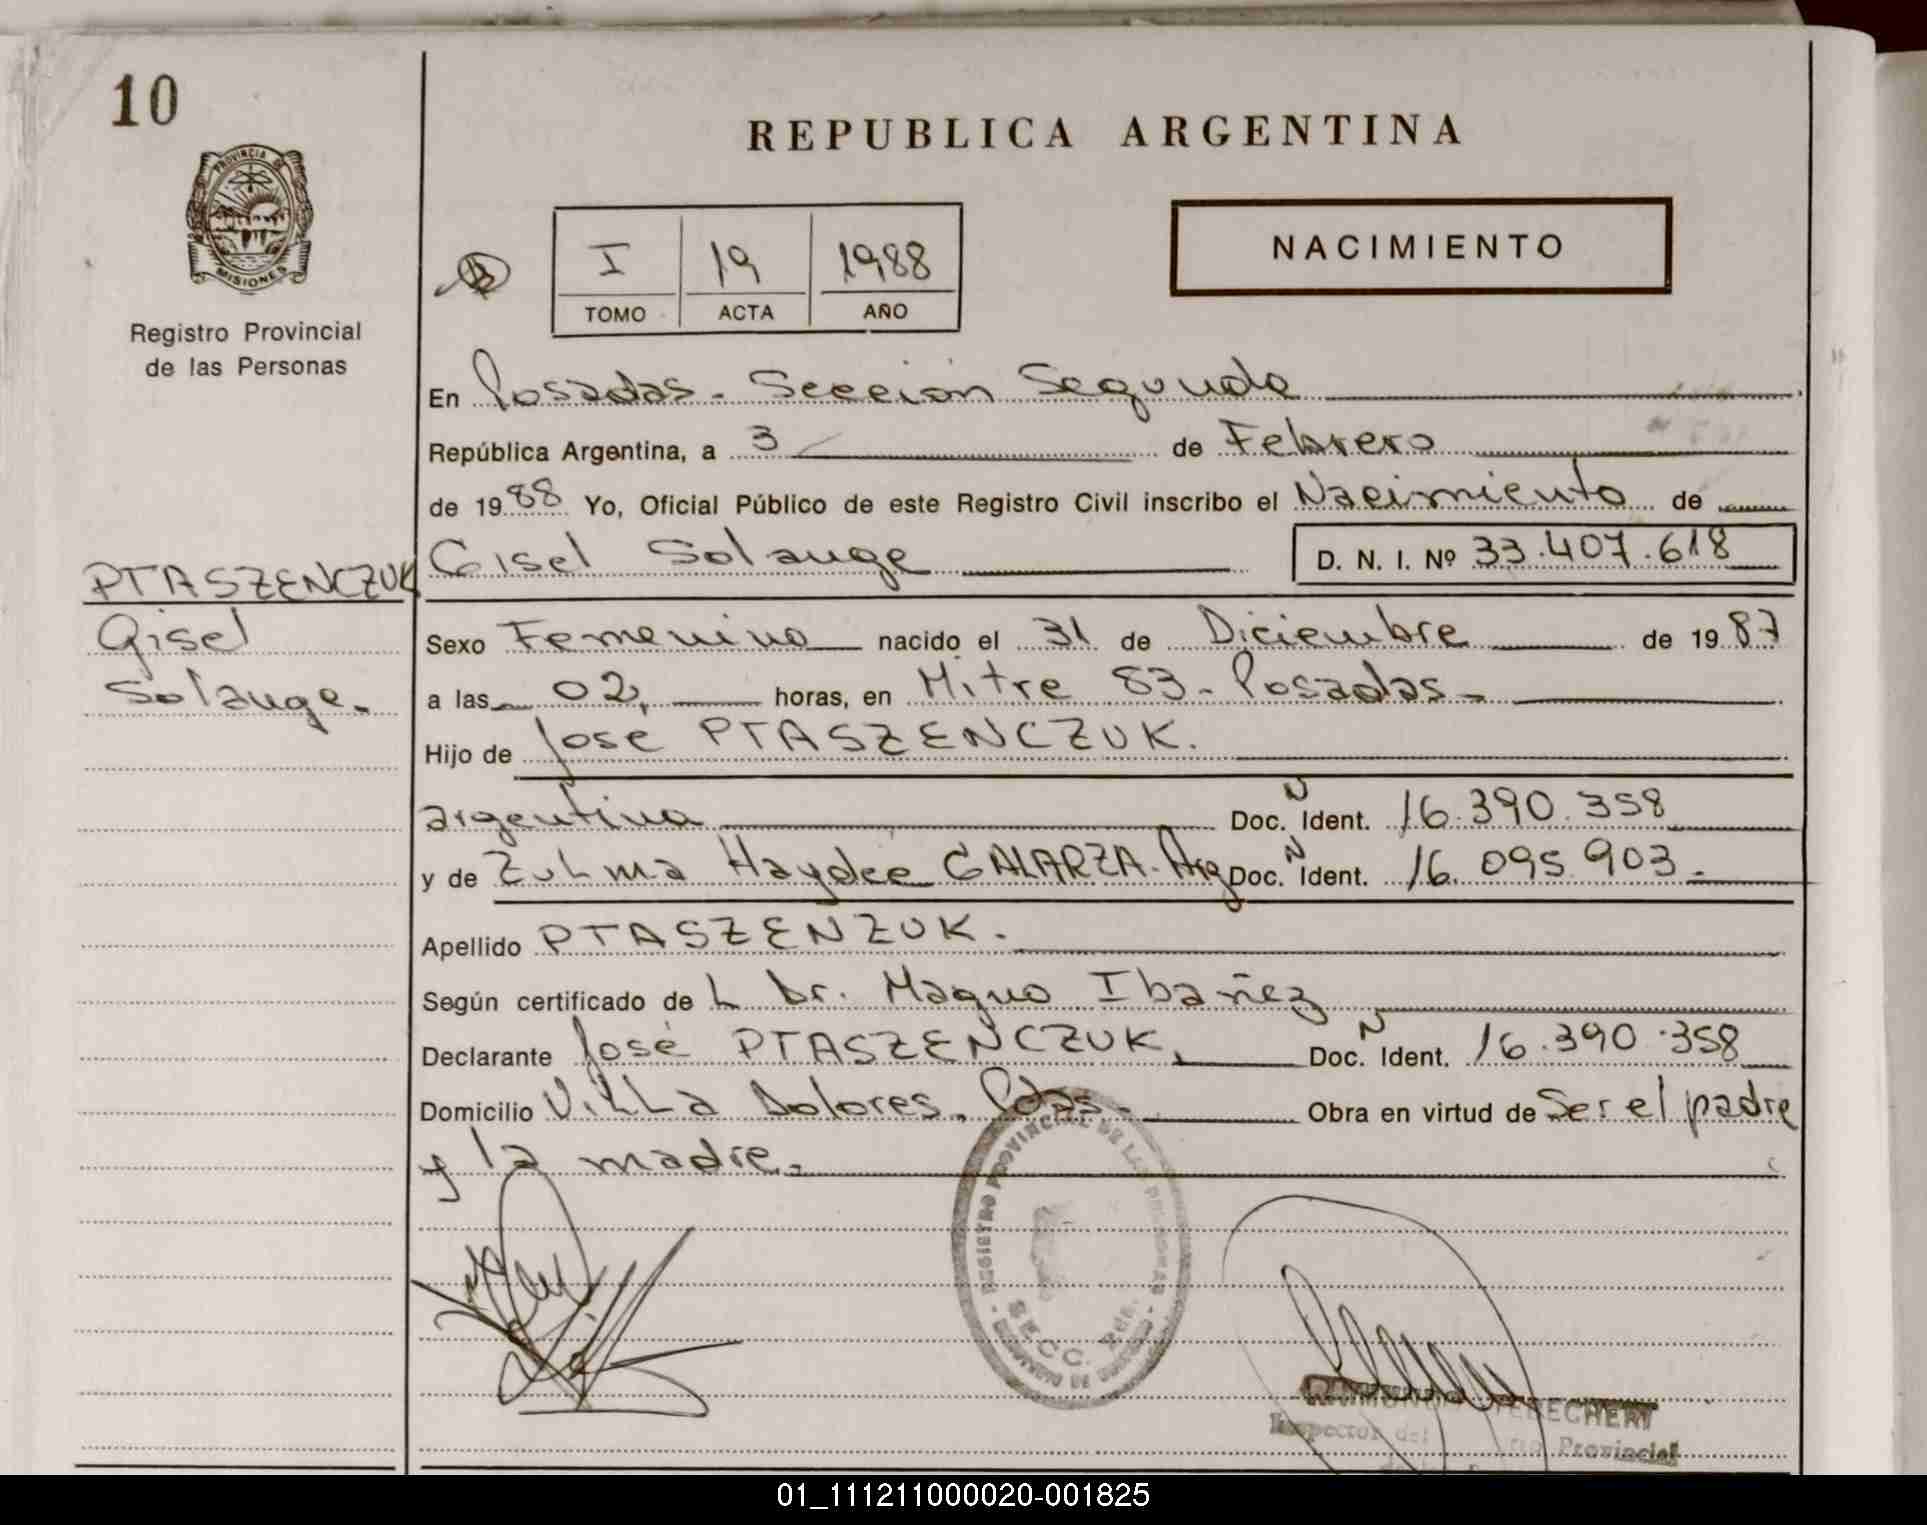 10
PROVINCIA DE
MISIONES
Registro Provincial
de las Personas
REPUBLICA ARGENTINA
I 19 1988
TOMO ACTA AÑO
NACIMIENTO
En Posadas. Sección Segunda
República Argentina, a 3 de Febrero
de 1988 Yo, Oficial Público de este Registro Civil inscribo el Nacimiento de
Gisel Solange D. N. I. Nº 33.407.618
PTASZENCZUK
Gisel
Solange.
Sexo Femenino nacido el 31 de Diciembre de 1987
a las 02, horas, en Mitre 83 - Posadas -
Hijo de Jose PTASZENCZUK.
argentina Doc. N Ident. 16.390.358
y de Zulma Haydée GALARZA. Arg Doc. N Ident. 16.095.903.
Apellido PTASZENZUK.
Según certificado de L Dr. Magno Ibañez
Declarante José PTASZENCZUK, Doc. N Ident. 16.390.358
Domicilio Villa Dolores. Pdas. Obra en virtud de Ser el padre
y la madre.
REGISTRO PROVINCIAL DE LAS PERSONAS
SECC. 2da.
Inspector del Provincial
01_111211000020-001825